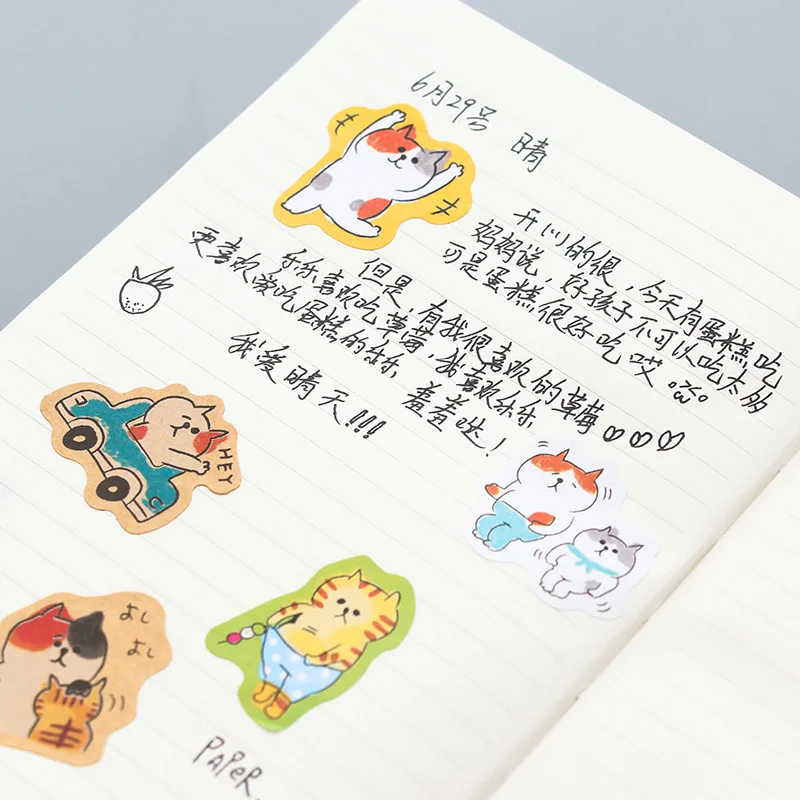 6月29号 晴
开心的很，今天有蛋糕吃
妈妈说，好孩子不可以吃太多
可是蛋糕很好吃哎
但是，有我很喜欢的草莓
乐乐喜欢吃草莓，我喜欢乐乐
更喜欢爱吃蛋糕的乐乐 羞羞哒！
我爱晴天!!!
HEY
よし
よし
PAPER